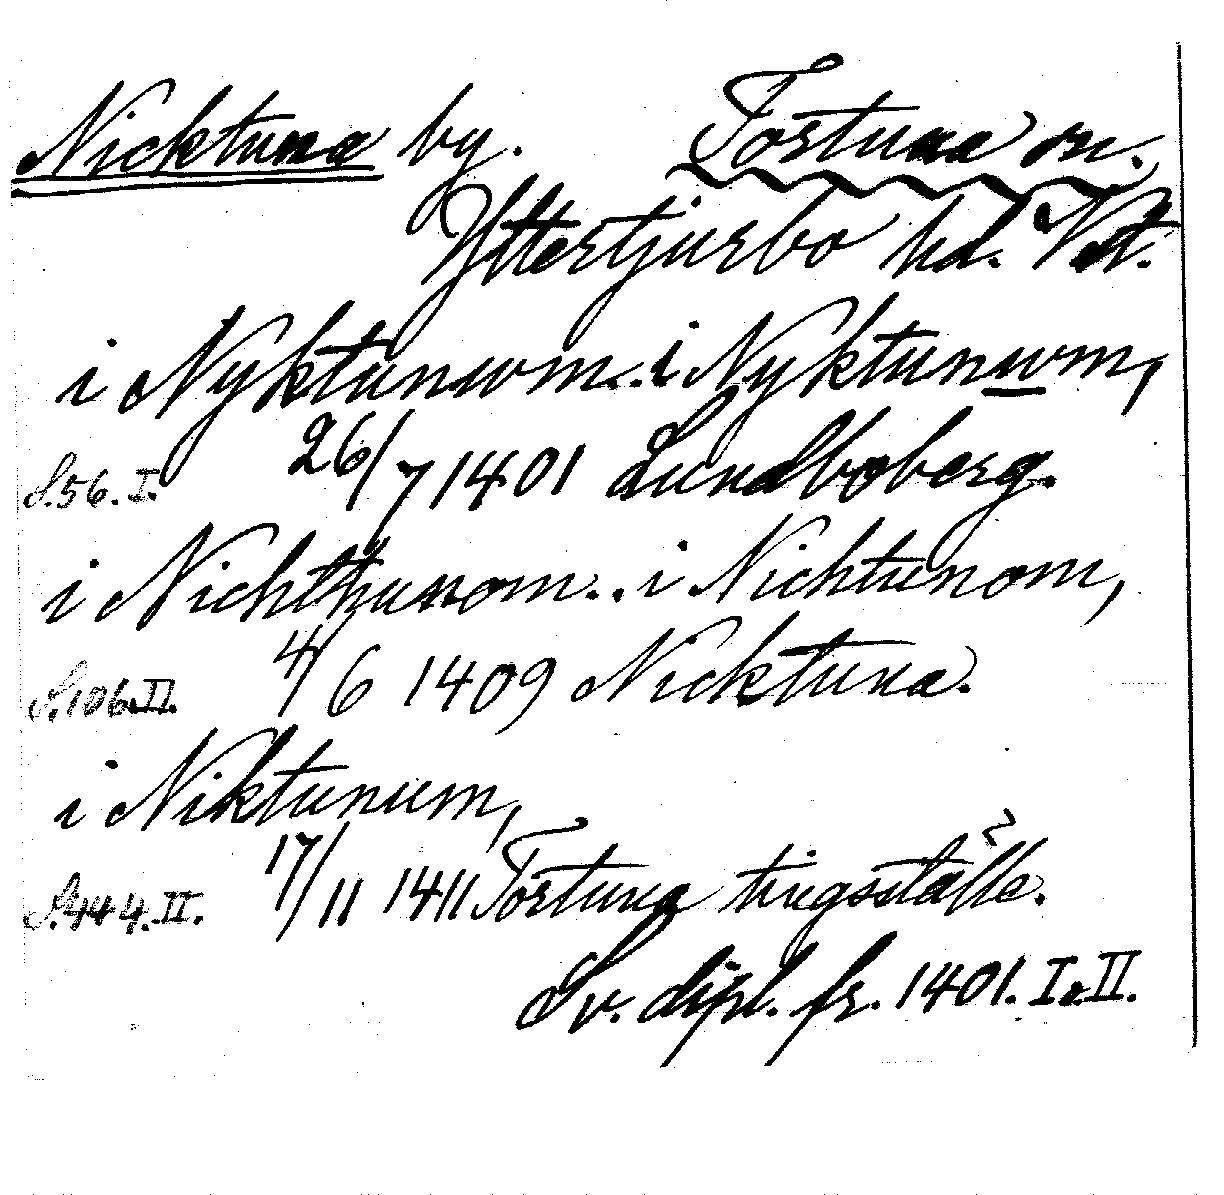 Nicktuna by. Tortuna sn.
Yttertjurbo hd. Vstm.
i Nyktunwm . . i Nyktunwm,
S. 56. I. 26/7 1401 Lundboberg.
i Nichthunom . . i Nichtunom,
S. 106. II. 4/6 1409 Nicktuna.
i Niktunum,
S. 444. II. 17/11 1411 Tortuna tingställe.
Sv. dipl. fr. 1401. I. o. II.